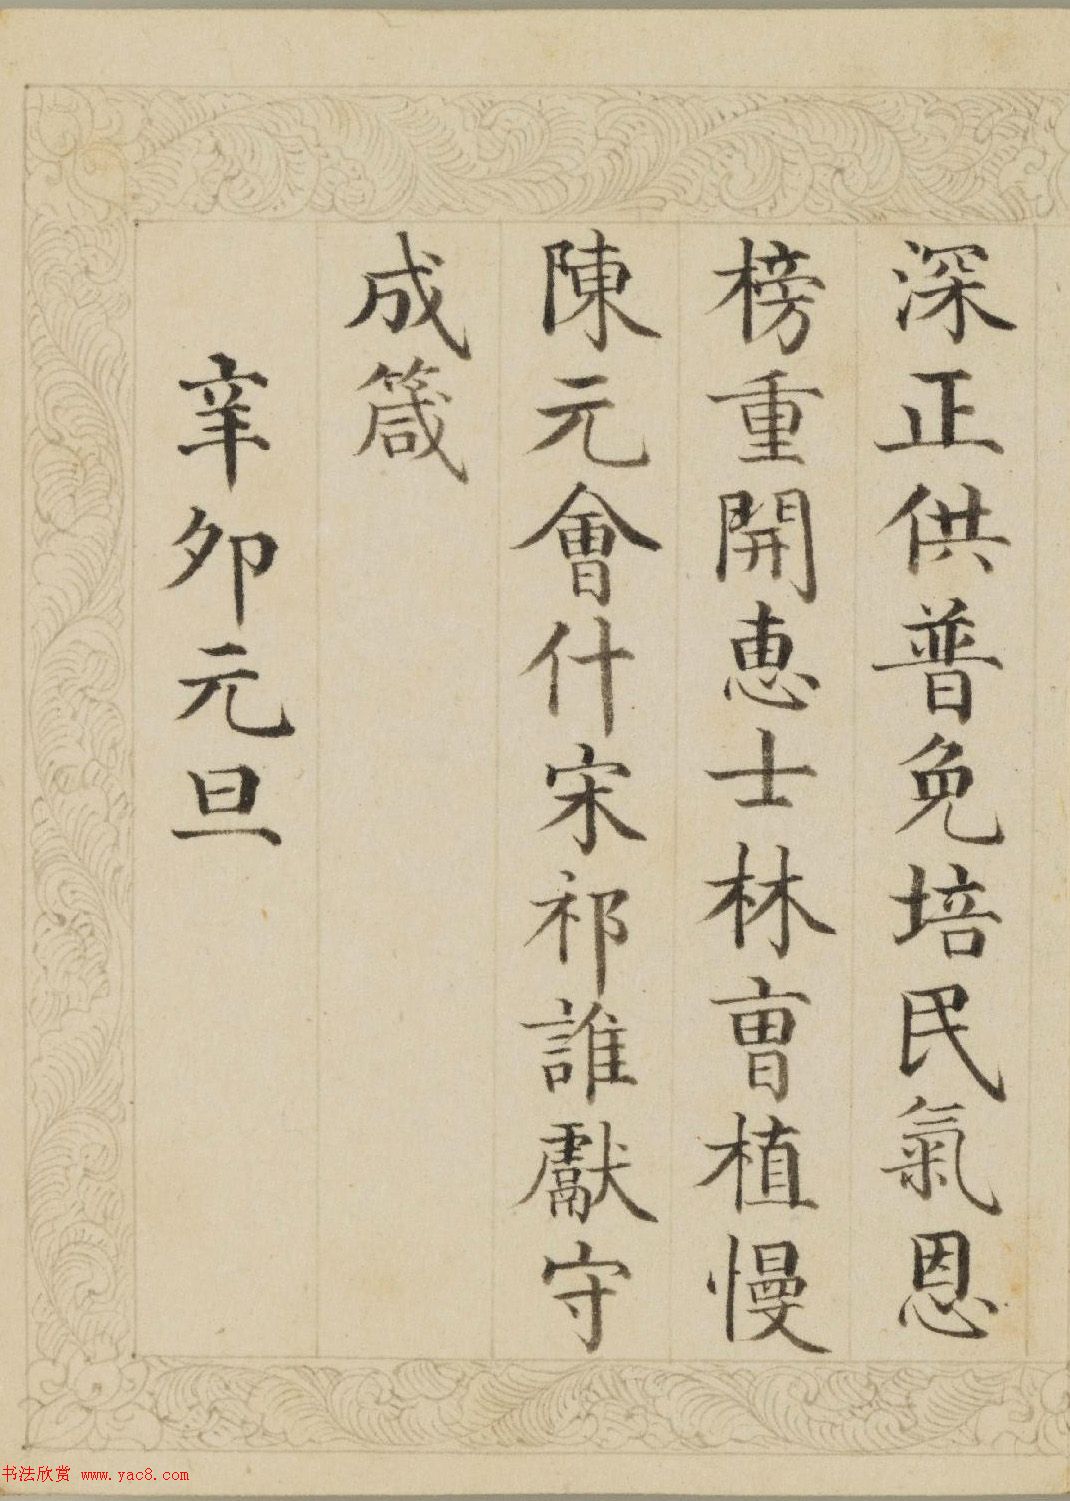 深正供普免培民氣恩
榜重開惠士林冑植慢
陳元會什宋祁誰獻守
成箴
辛卯元旦
书法欣赏 www.yac8.com